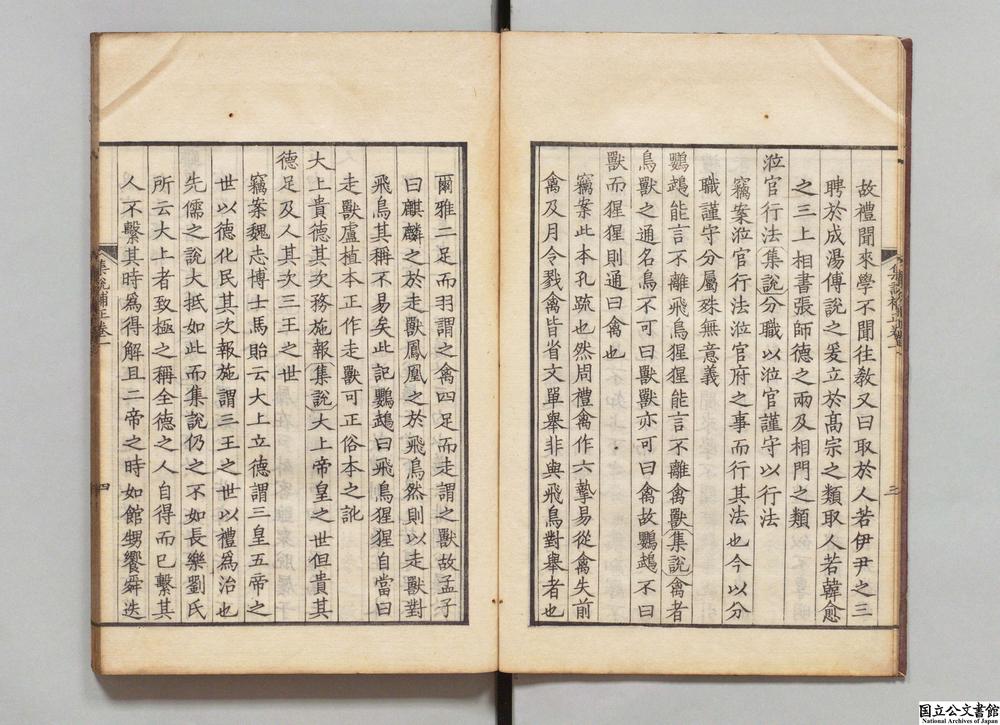 故禮聞來學不聞往敎又曰取於人若伊尹之三
聘於成湯傅說之爰立於高宗之類取人若韓愈
之三上相書張師德之兩及相門之類
涖官行法集說分職以涖官謹守以行法
竊案涖官行法涖官府之事而行其法也今以分
職謹守分屬殊無意義
鸚鵡能言不離飛鳥猩猩能言不離禽獸集說禽者
鳥獸之通名鳥不可曰獸獸亦可曰禽故鸚鵡不曰
獸而猩猩則通曰禽也
竊案此本孔疏也然周禮禽作六摯易從禽失前
禽及月令戮禽皆省文單舉非與飛鳥對舉者也
三
集說補正卷一
爾雅二足而羽謂之禽四足而走謂之獸故孟子
曰麒麟之於走獸鳳凰之於飛鳥然則以走獸對
飛鳥其稱不易矣此記鸚鵡曰飛鳥猩猩自當曰
走獸盧植本正作走獸可正俗本之訛
大上貴德其次務施報集說大上帝皇之世但貴其
德足及人其次三王之世
竊案魏志博士馬貽云大上立德謂三皇五帝之
世以德化民其次報施謂三王之世以禮爲治也
先儒之說大抵如此而集說仍之不如長樂劉氏
所云大上者致極之稱全德之人自得而已繫其
人不繫其時爲得解且二帝之時如館甥饗舜迭
集說補正卷一
四
国立公文書館
National Archives of Japan